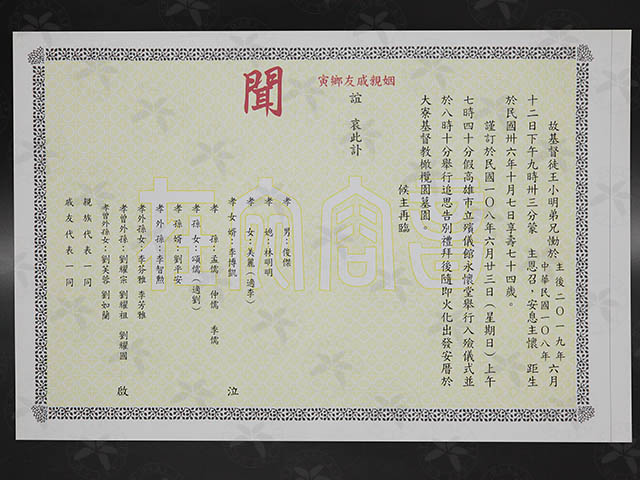 故基督徒王小明弟兄慟於主後二〇一九年中華民國一〇八年六月
十二日下午九時卅三分蒙　主恩召，安息主懷　距生
於民國卅六年十月七日享壽七十四歲。
謹訂於民國一〇八年六月廿三日(星期日)上午
七時四十分假高雄市立殯儀館永懷堂舉行入殮儀式並
於八時十分舉行追思告別禮拜後隨即火化出發安厝於
大寮基督教橄欖園墓園。
候主再臨
誼　哀此訃
姻親戚友鄉寅
聞
孝　男：俊傑
孝　媳：林明明
孝　女：美麗(適李)
孝女婿：李博凱
孝　孫：孟儒　仲儒　季儒
孝孫女：頌儒(適劉)
孝孫婿：劉平安
孝外孫：李智勲
孝外孫女：李芬雅　李芳雅
孝曾外孫：劉耀宗　劉耀祖　劉耀國
孝曾外孫女：劉芙蓉　劉如蘭
親族代表一同
戚友代表一同
泣
啟